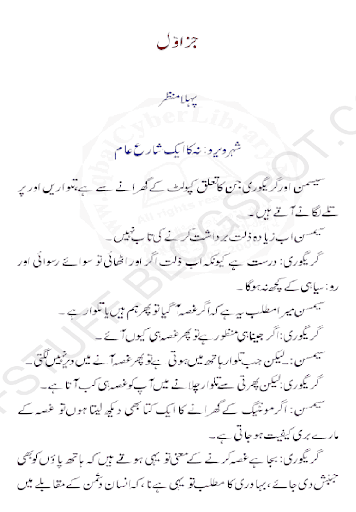 جز اوّل
پہلا منظر
شہر ویرو نہ کا ایک شارع عام
سیمسن اور گریگوری جن کا تعلق کپولٹ کے گھرانے سے ہے، تلواریں اور پر
تلے لگائے آتے ہیں۔
سیمسن اب زیادہ ذلت برداشت کرنے کی تاب نہیں۔
گریگوری: درست ہے کیونکہ اب ذلت اگر اور اٹھائی تو سوائے رسوائی اور
رو سیاہی کے کچھ نہ ہوگا۔
سیمسن میرا مطلب یہ ہے کہ اگر غصہ آ گیا تو پھر ہم ہیں یا تلوار ہے۔
گریگوری: اگر جینا ہی منظور ہے تو پھر غصہ ہی کیوں آئے۔
سیمسن: لیکن جب تلوار ہاتھ میں ہوتی ہے تو پھر غصہ آنے میں دیر نہیں لگتی۔
گریگوری: لیکن پھرتی سے تلوار چلانے میں آپ کو غصہ ہی کب آتا ہے۔
سیمسن: اگر مونٹیگ کے گھرانے کا ایک کتا بھی دیکھ لیتا ہوں تو غصہ کے
مارے بری کیفیت ہو جاتی ہے۔
گریگوری: بجا ہے غصہ کرنے کے معنی تو یہی ہوتے ہیں کہ ہاتھ پاؤں کو بھی
جنبش دی جائے، بہادری کا مطلب تو یہی ہے نا، کہ انسان دشمن کے مقابلے میں